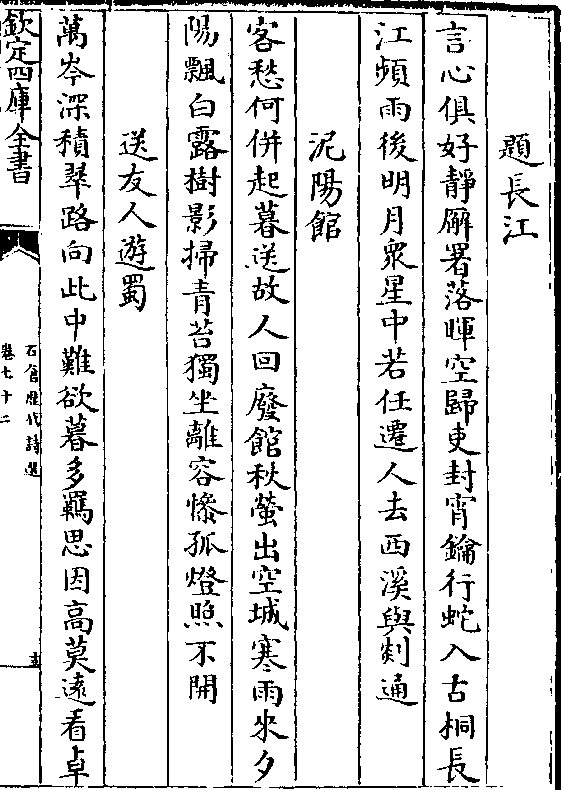 題長江
言心俱好靜廨署落暉空歸吏封宵鑰行蛇入古桐長
江頻雨後明月衆星中若任遷人去西溪與剡通
泥陽館
客愁何併起暮送故人回廢館秋螢出空城寒雨來夕
陽飄白露樹影掃青苔獨坐離容慘孤燈照不開
送友人遊蜀
萬岑深積翠路向此中難欲暮多羈思因高莫遠看卓
欽定四庫全書
石倉歷代詩選
卷七十二